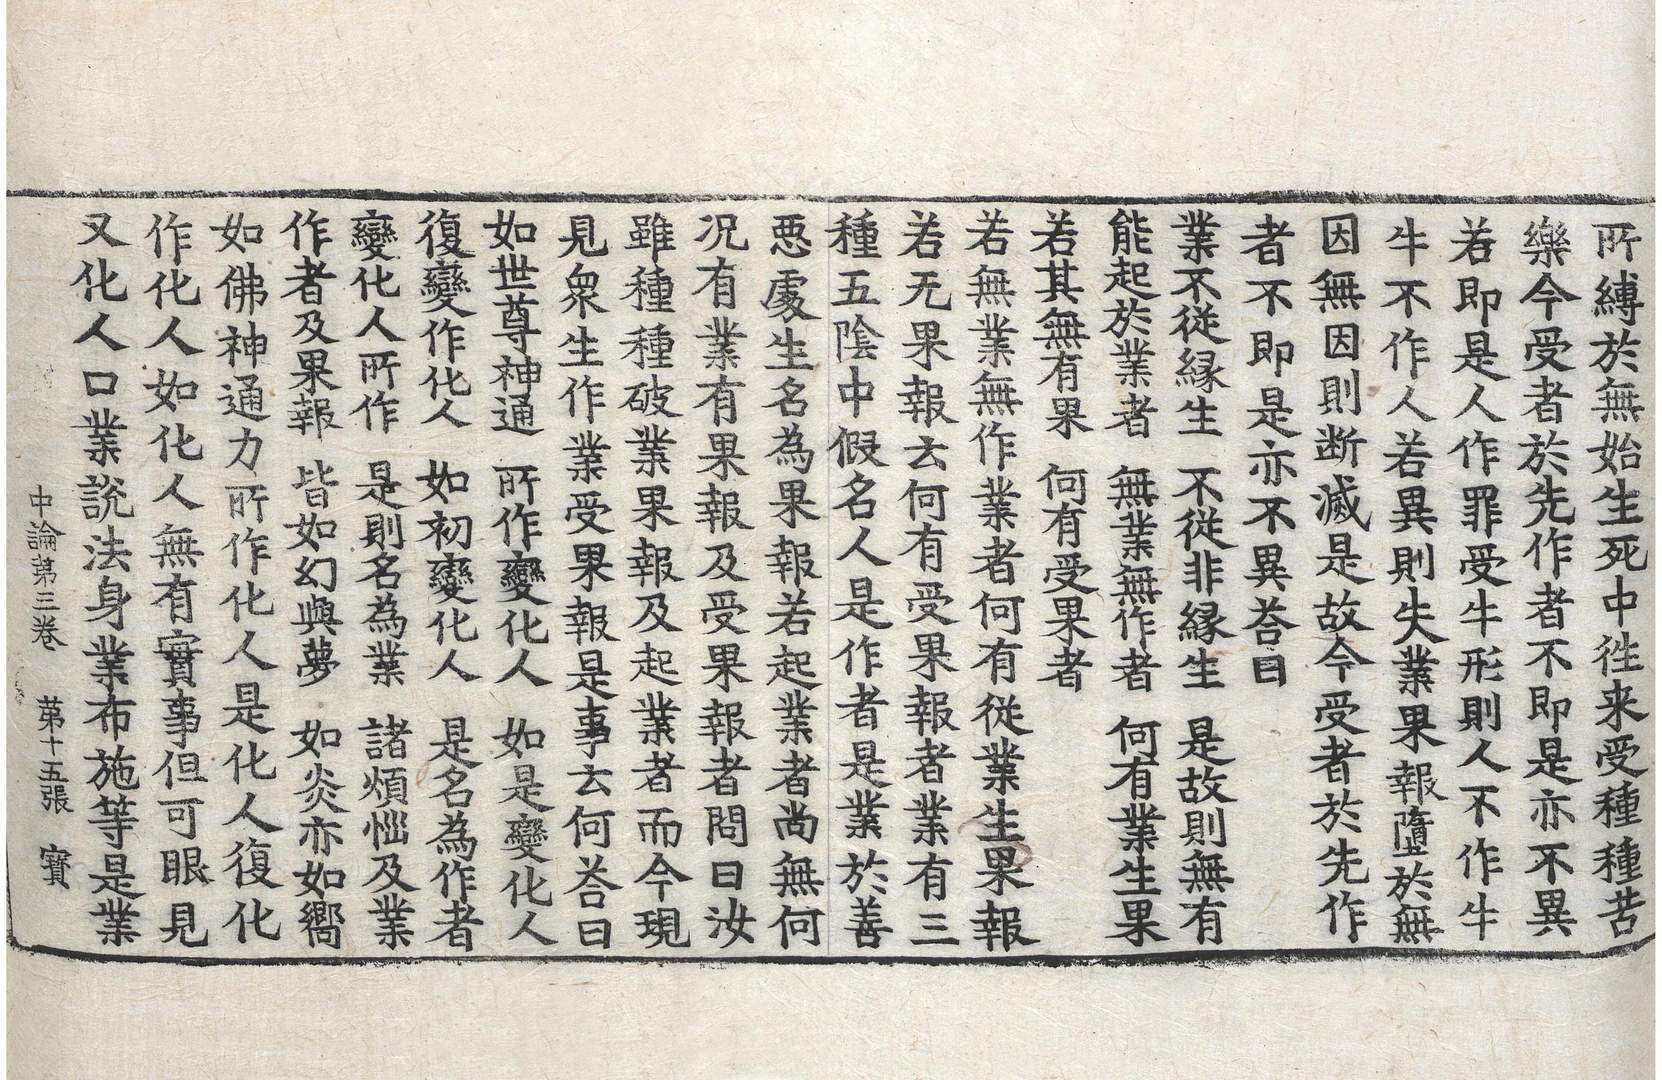 所縛於無始生死中徃来受種種苦
樂今受者於先作者不即是亦不異
若即是人作罪受牛形則人不作牛
牛不作人若異則失業果報墮於無
因無因則断滅是故今受者於先作
者不即是亦不異荅曰
業不従縁生 不従非縁生 是故則無有
能起於業者 無業無作者 何有業生果
若其無有果 何有受果者
若無業無作業者何有従業生果報
若无果報云何有受果報者業有三
種五陰中假名人是作者是業於善
惡處生名為果報若起業者尚無何
况有業有果報及受果報者問曰汝
雖種種破業果報及起業者而今現
見衆生作業受果報是事云何荅曰
如世尊神通 所作變化人 如是變化人
復變作化人 如初變化人 是名為作者
變化人所作 是則名為業 諸煩惱及業
作者及果報 皆如幻與夢 如炎亦如嚮
如佛神通力所作化人是化人復化
作化人如化人無有實事但可眼見
又化人口業說法身業布施等是業
中論苐三卷 苐十五張 寳